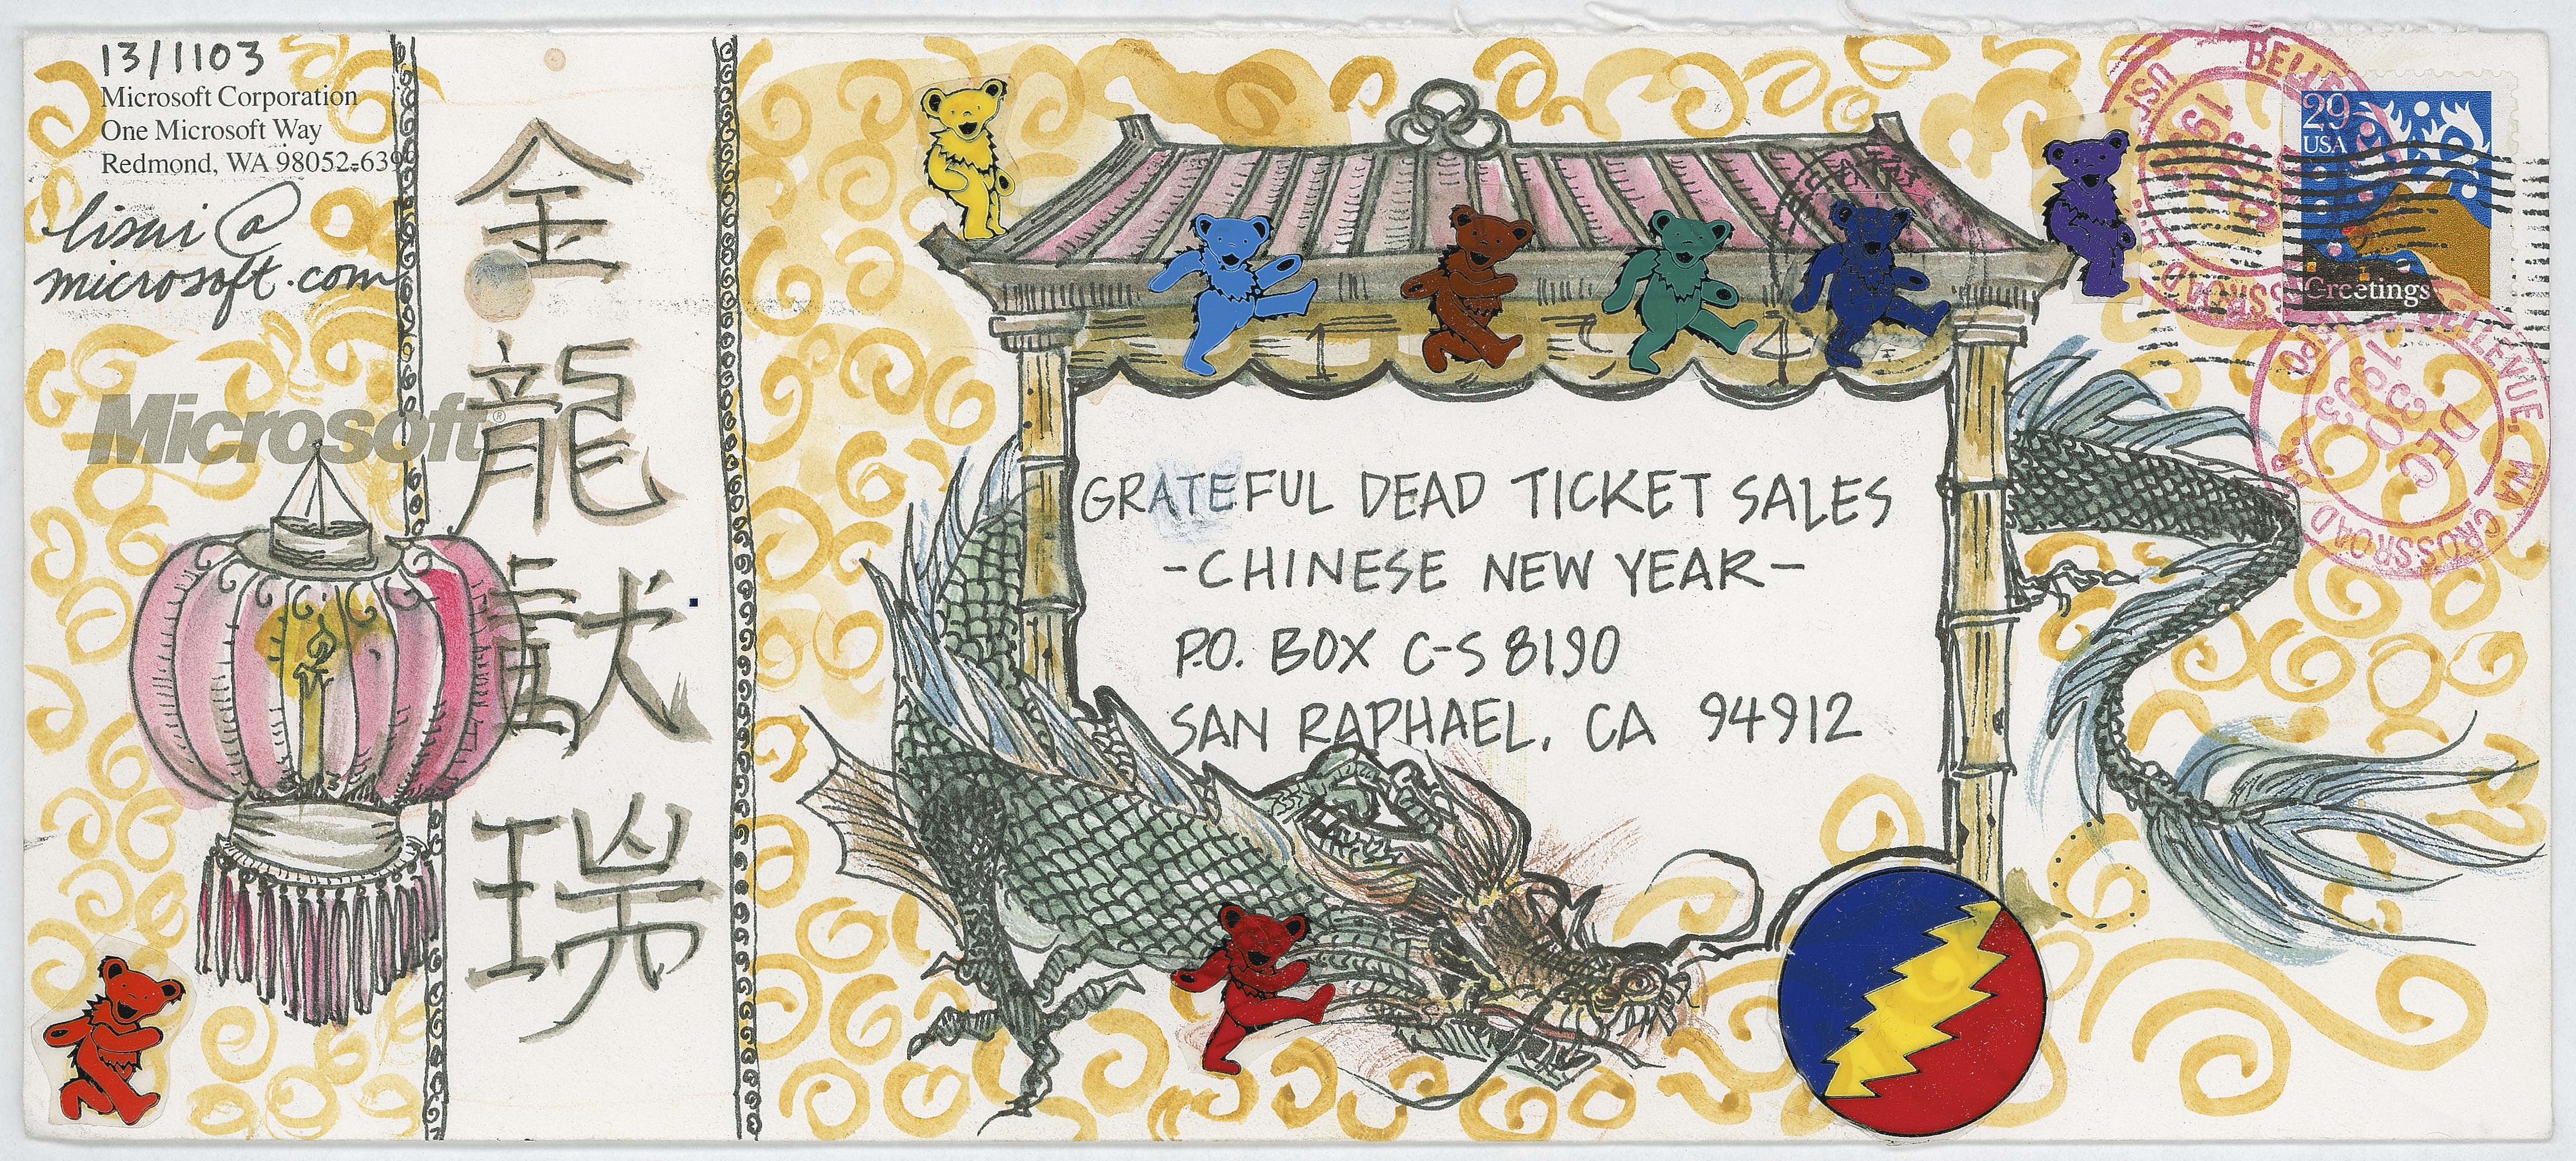 13/1103
Microsoft Corporation
One Microsoft Way
Redmond, WA 98052-639
lisni@
microsoft.com
Microsoft®
金龍獻瑞
GRATEFUL DEAD TICKET SALES
-CHINESE NEW YEAR-
P.O. BOX C-S 8190
SAN RAPHAEL, CA 94912
29
USA
Greetings
BELLEVUE, WA CROSSROAD
DEC
30
1993